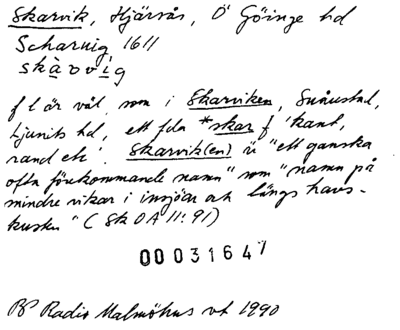 Skarvik, Hjärsås, Ö Göinge hd
Scharuig 1611
skàrvíg
f l är väl, som i Skarviken, Snåustad,
Ljunits hd, ett fda *skar f 'kant,
rand etc'. Skarvik(en) är "ett ganska
ofta förekommande namn" som "namn på
mindre vikar i insjöar och längs havs-
kusten" (SkOA 11:91)
00031647
BP Radio Malmöhus vt 1990